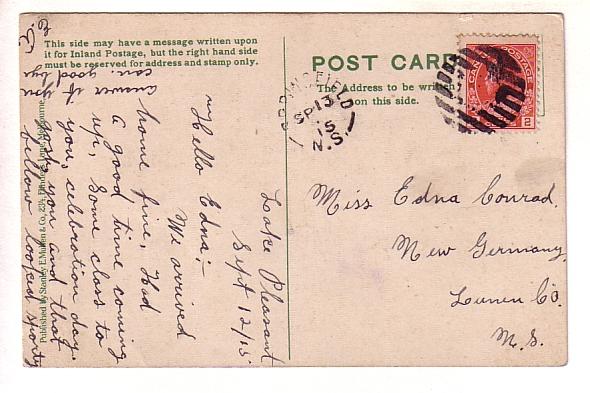 This side may have a message written upon
it for Inland Postage, but the right hand side
must be reserved for address and stamp only.
POST CARD
The Address to be written
on this side.
FIELD
SP 13
15
N.S.
CAN
POSTAGE
2
Miss Edna Conrad,
New Germany,
Lunen Co.
N.S.
Lake Pleasant
Sept 12/15
Hello Edna:-
We arrived
home fine, Had
a good time coming
up, Some class to
you, celebration day,
you and that
fellow looked sporty
answer if you
can: good bye
Published by Stanley E. Mullen & Co.